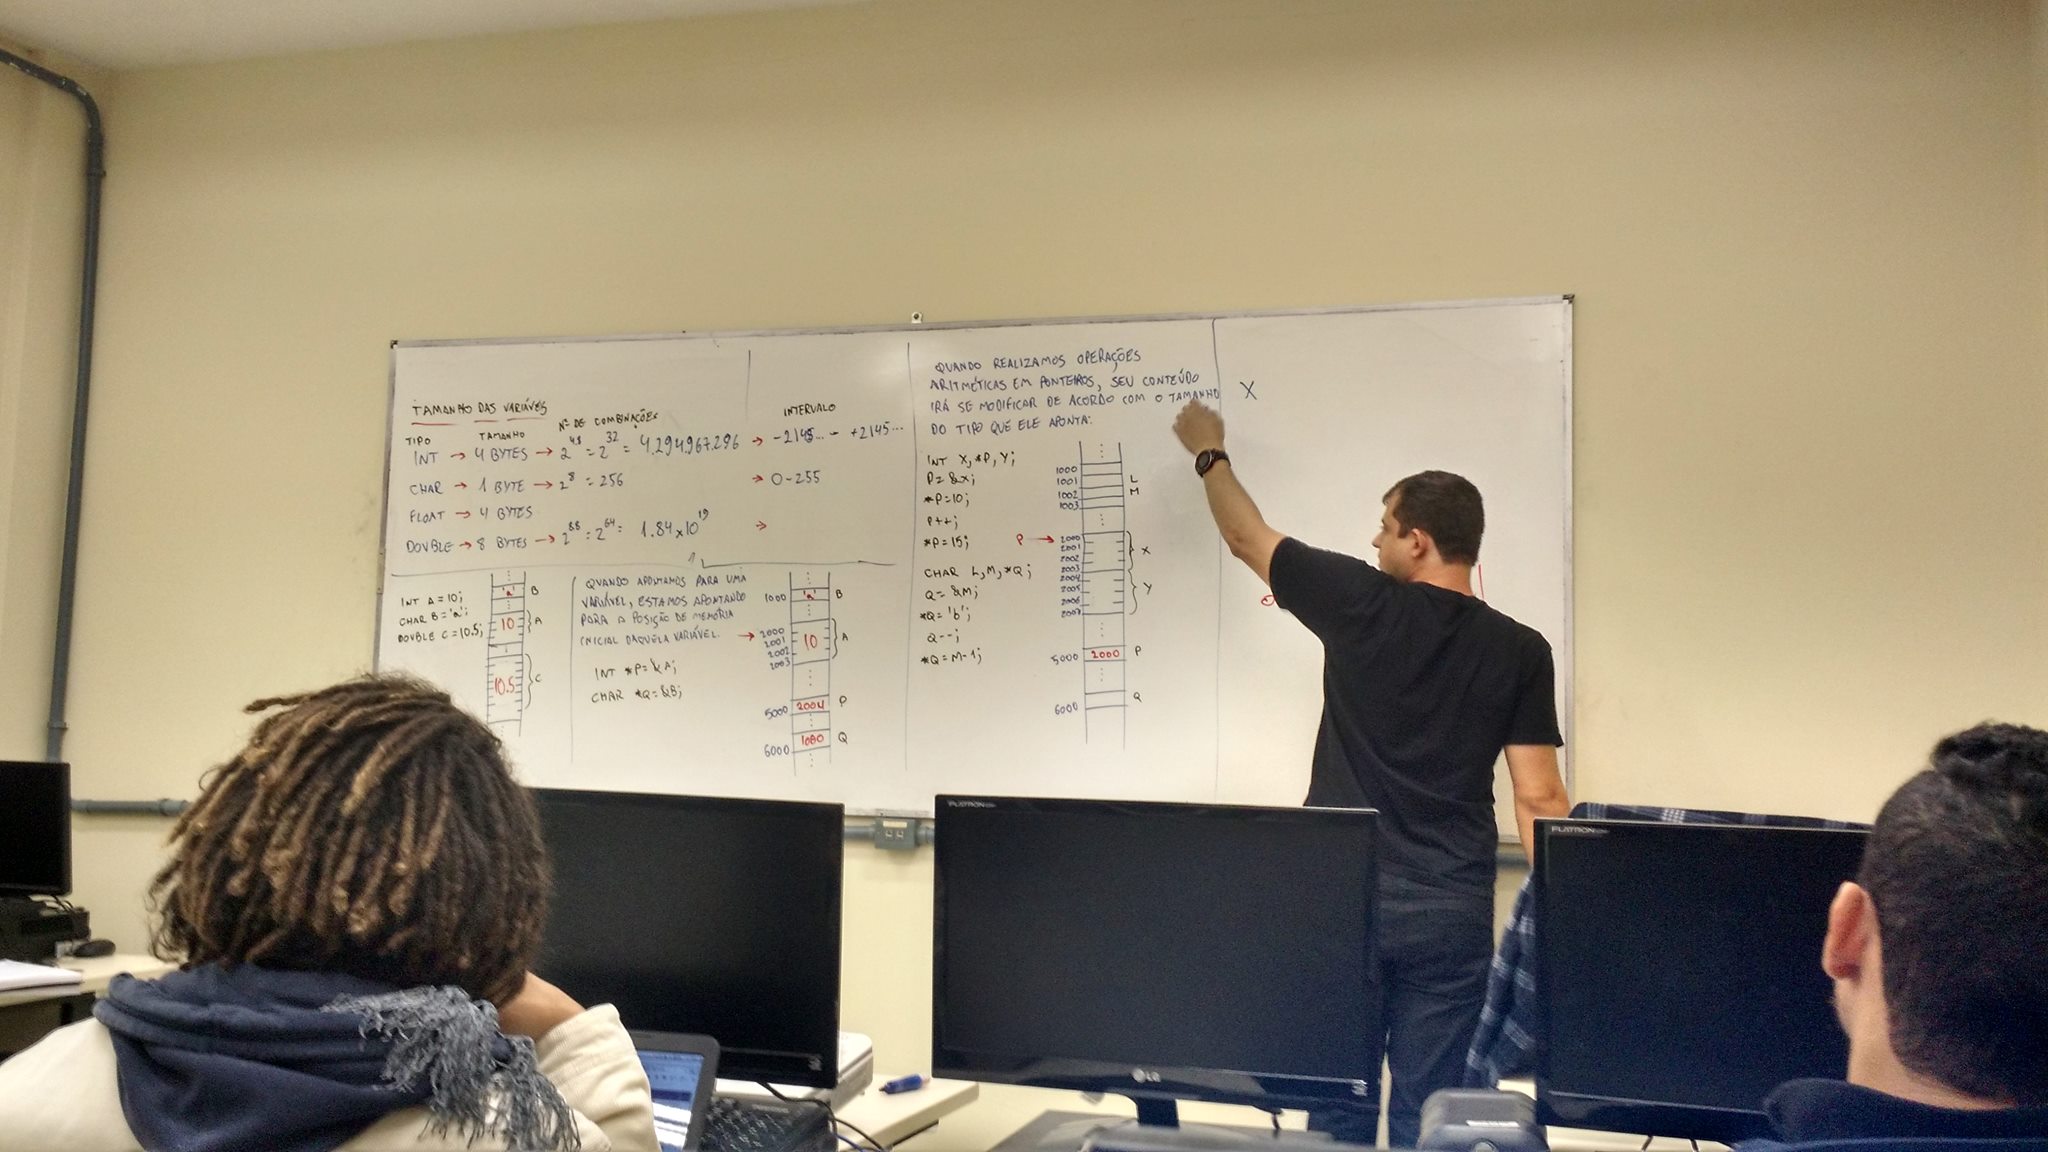 TAMANHO DAS VARIÁVEIS
TIPO TAMANHO Nº DE COMBINAÇÕES INTERVALO
INT → 4 BYTES → 2^4.8 = 2^32 = 4.294.967.296 → -2145... - +2145...
CHAR → 1 BYTE → 2^8 = 256 → 0-255
FLOAT → 4 BYTES
DOUBLE → 8 BYTES → 2^8.8 = 2^64 = 1.84x10^19 →
INT A = 10;
CHAR B = 'a';
DOUBLE C = 10.5;
'a' B
10 A
10.5 C
QUANDO APONTAMOS PARA UMA
VARIÁVEL, ESTAMOS APONTANDO
PARA A POSIÇÃO DE MEMÓRIA
INICIAL DAQUELA VARIÁVEL.
INT *P = &A;
CHAR *Q = &B;
1000 'a' B
2000
2001 10 A
2002
2003
5000 2004 P
6000 1000 Q
QUANDO REALIZAMOS OPERAÇÕES
ARITMÉTICAS EM PONTEIROS, SEU CONTEÚDO
IRÁ SE MODIFICAR DE ACORDO COM O TAMANHO
DO TIPO QUE ELE APONTA:
INT X, *P, Y;
P = &X;
*P = 10;
P++;
*P = 15;
CHAR L, M, *Q;
Q = &M;
*Q = 'b';
Q--;
*Q = M-1;
1000
1001 L
1002 M
1003
P → 2000
2001
2002 X
2003
2004
2005 Y
2006
2007
5000 2000 P
6000 Q
X
FLATRON
LG
FLATRON